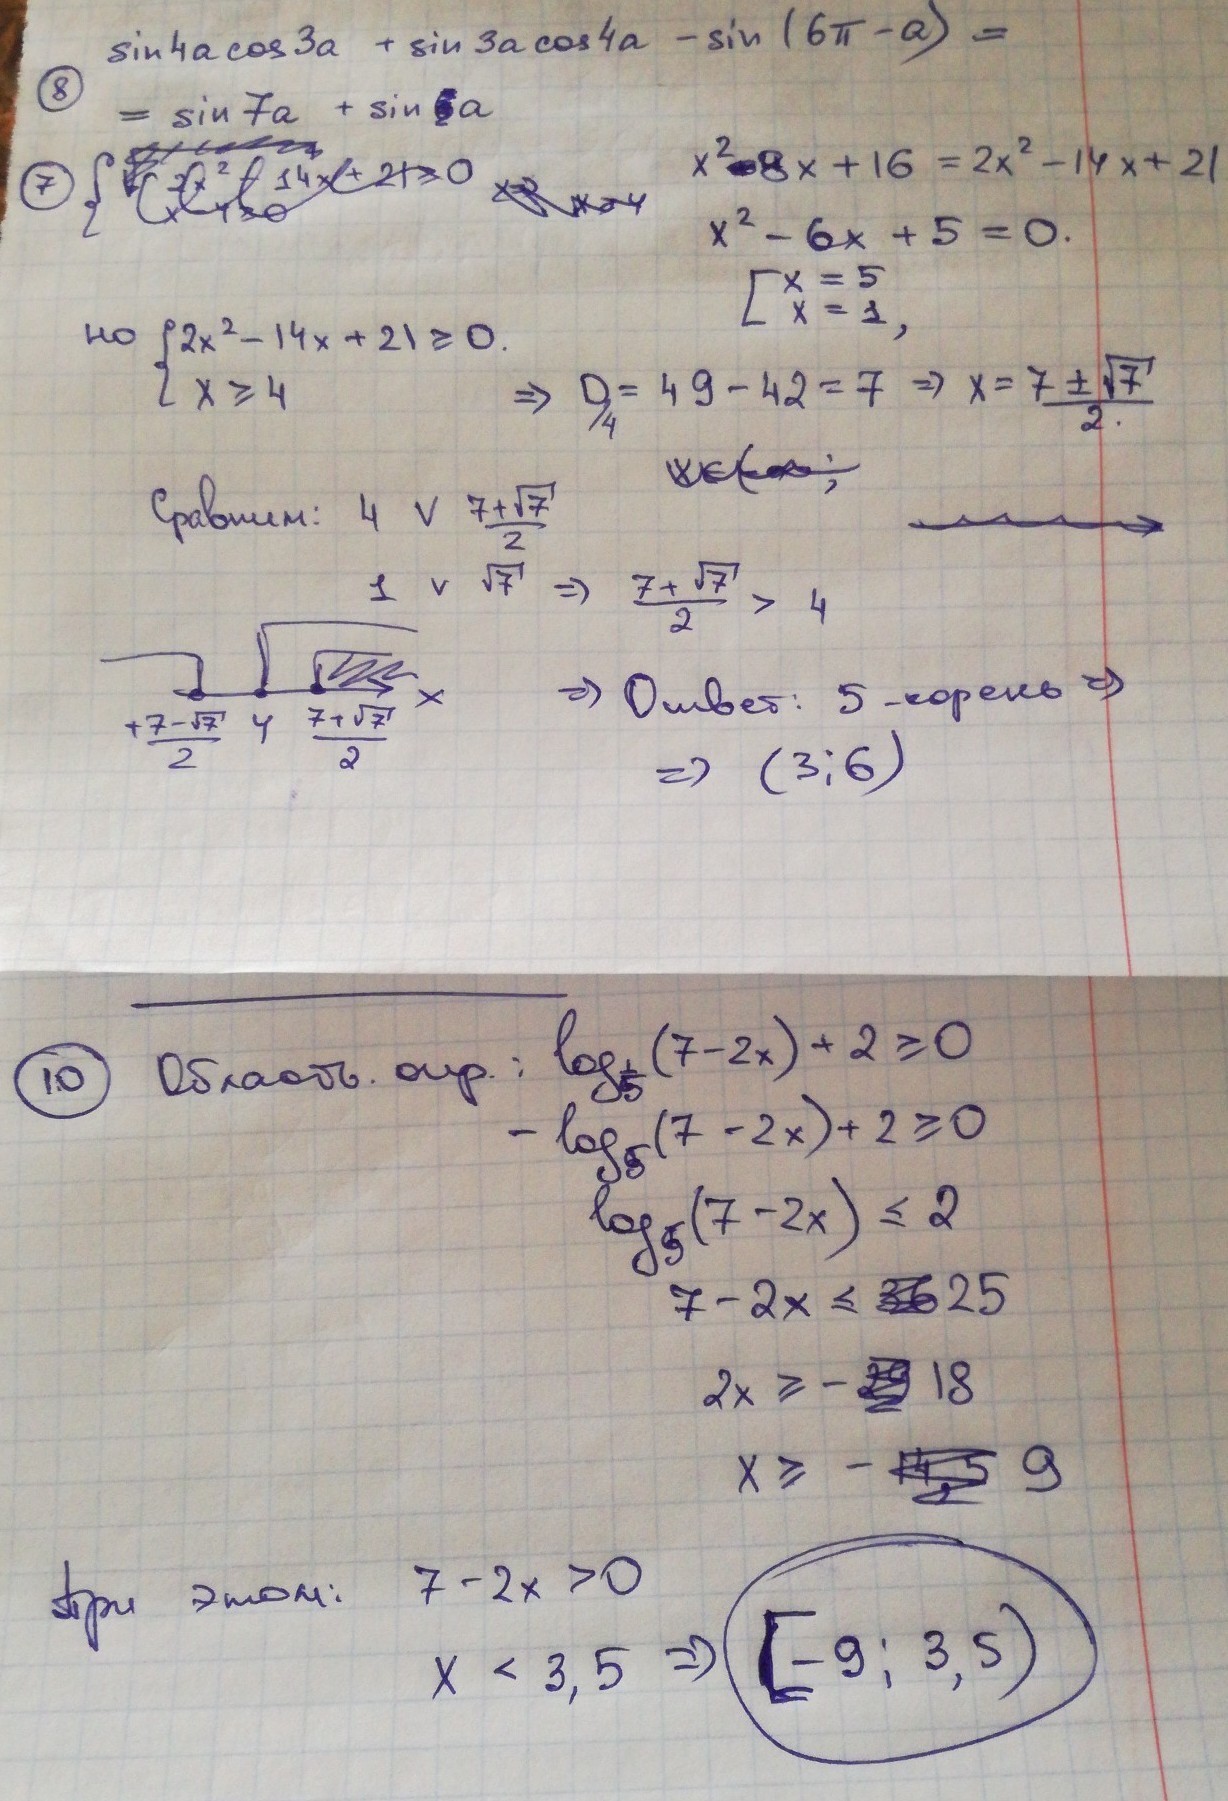 sin4a cos3a + sin3a cos4a - sin(6π - a) =
⑧
= sin7a + sin a
⑦ { 2x² - 14x + 21 ≥ 0
x²-8x + 16 = 2x² - 14x + 21
x² - 6x + 5 = 0.
[ x = 5
x = 1,
но { 2x² - 14x + 21 ≥ 0.
x ≥ 4 ⇒ D/4 = 49 - 42 = 7 ⇒ x = (7 ± √7)/2.
Сравним: 4 ∨ (7+√7)/2
1 ∨ √7 ⇒ (7+√7)/2 > 4
+(7-√7)/2 4 (7+√7)/2 x
⇒ Ответ: 5 - корень ⇒
⇒ (3;6)
10 Область. опр.: log_{1/5}(7-2x) + 2 ≥ 0
- log_5(7 - 2x) + 2 ≥ 0
log_5(7 - 2x) ≤ 2
7 - 2x ≤ 25
2x ≥ - 18
x ≥ - 9
При этом: 7 - 2x > 0
x < 3,5 ⇒ [-9; 3,5)